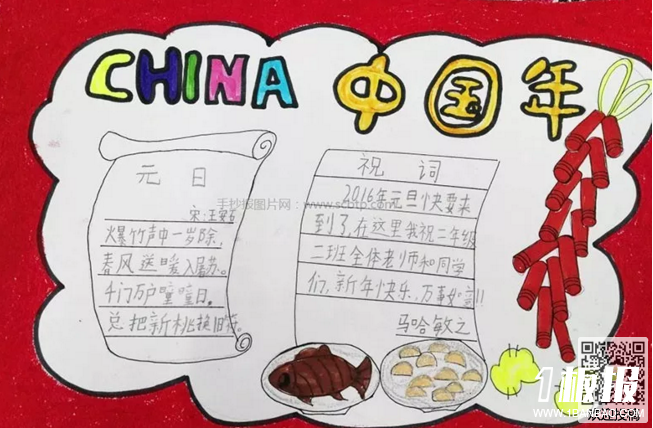 CHINA 中国年
元 日
宋:王安石
爆竹声中一岁除,
春风送暖入屠苏。
千门万户曈曈日,
总把新桃换旧符。
祝 词
2016年元旦快要来
到了,在这里我祝二年级
二班全体老师和同学
们,新年快乐、万事如意!!
马哈敏之
手抄报图片网:
1板报
www.1BANBAO.COM